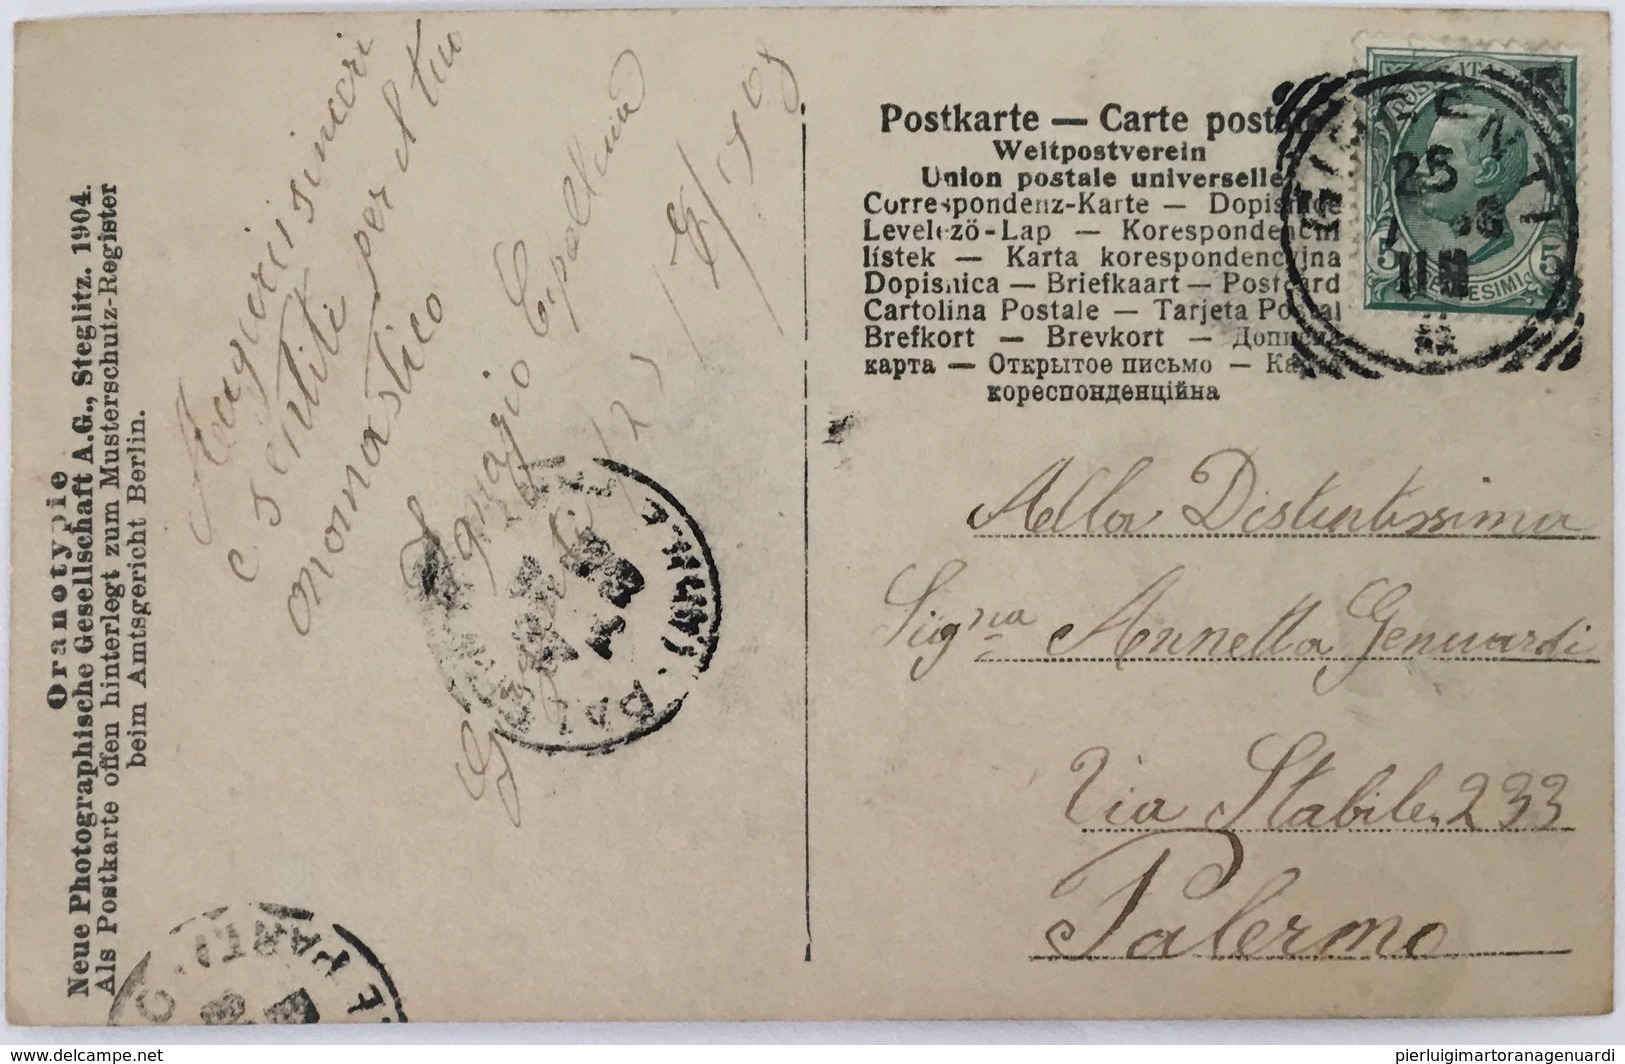 Oranotypie
Neue Photographische Gesellschaft A.G., Steglitz. 1904.
Als Postkarte offen hinterlegt zum Musterschutz-Register
beim Amtsgericht Berlin.
Augurii sinceri
e sentiti per il tuo
onomastico
Ignazio
Girgenti
Postkarte — Carte postale
Weltpostverein
Union postale universelle
Correspondenz-Karte — Dopisnice
Levelező-Lap — Korespondenční
lístek — Karta korespondencyjna
Dopisnica — Briefkaart — Postcard
Cartolina Postale — Tarjeta Postal
Brefkort — Brevkort — Дописна
карта — Открытое письмо — Карта
кореспонденційна
POSTE ITALIANE
5 CENTESIMI 5
GIRGENTI
25
Alla Distintissima
Sigᶰᵃ Annetta Genuardi
Via Stabile, 233
Palermo
delcampe.net
pierluigimartoranagenuardi